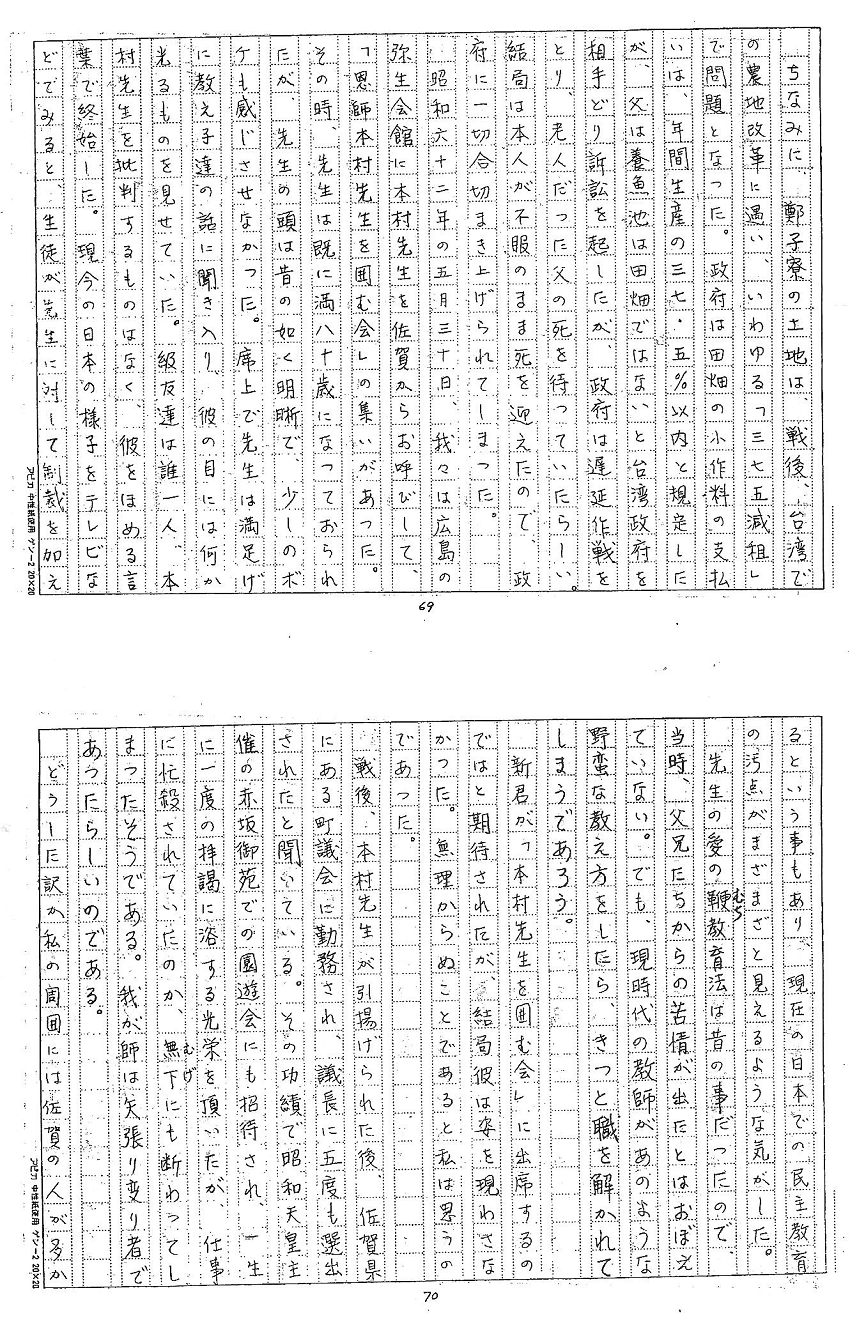 ちなみに、鄭子寮の土地は、戦後、台湾で
の農地改革に遇い、いわゆる「三七五減租」
で問題となった。政府は田畑の小作料の支払
いは、年間生産の三七・五％以内と規定した
が、父は養魚池は田畑ではないと台湾政府を
相手どり訴訟を起したが、政府は遅延作戦を
とり、老人だった父の死を待っていたらしい。
結局は本人が不服のまま死を迎えたので、政
府に一切合切まき上げられてしまった。
昭和六十二年の五月三十日、我々は広島の
弥生会館に本村先生を佐賀からお呼びして、
「恩師本村先生を囲む会」の集いがあった。
その時、先生は既に満八十歳になっておられ
たが、先生の頭は昔の如く明晰で、少しのボ
ケも感じさせなかった。席上で先生は満足げ
に教え子達の話に聞き入り、彼の目には何か
光るものを見せていた。級友達は誰一人、本
村先生を批判するものはなく、彼をほめる言
葉で終始した。現今の日本の様子をテレビな
どでみると、生徒が先生に対して制裁を加え
アピカ 中性紙使用 ゲンー2 20×20
69
るという事もあり、現在の日本での民主教育
の汚点がまざまざと見えるような気がした。
先生の愛の鞭教育法は昔の事だったので、
むち
当時、父兄たちからの苦情が出たとはおぼえ
ていない。でも、現時代の教師があのような
野蛮な教え方をしたら、きっと職を解かれて
しまうであろう。
新君が「本村先生を囲む会」に出席するの
ではと期待されたが、結局彼は姿を現わさな
かった。無理からぬことであると私は思うの
であった。
戦後、本村先生が引揚げられた後、佐賀県
にある町議会に勤務され、議長に五度も選出
されたと聞いている。その功績で昭和天皇主
催の赤坂御苑での園遊会にも招待され、一生
に一度の拝謁に浴する光栄を頂いたが、仕事
に忙殺されていたのか、無下にも断わってし
むげ
まったそうである。我が師は矢張り変り者で
あったらしいのである。
どうした訳か私の周囲には佐賀の人が多か
アピカ 中性紙使用 ゲンー2 20×20
70